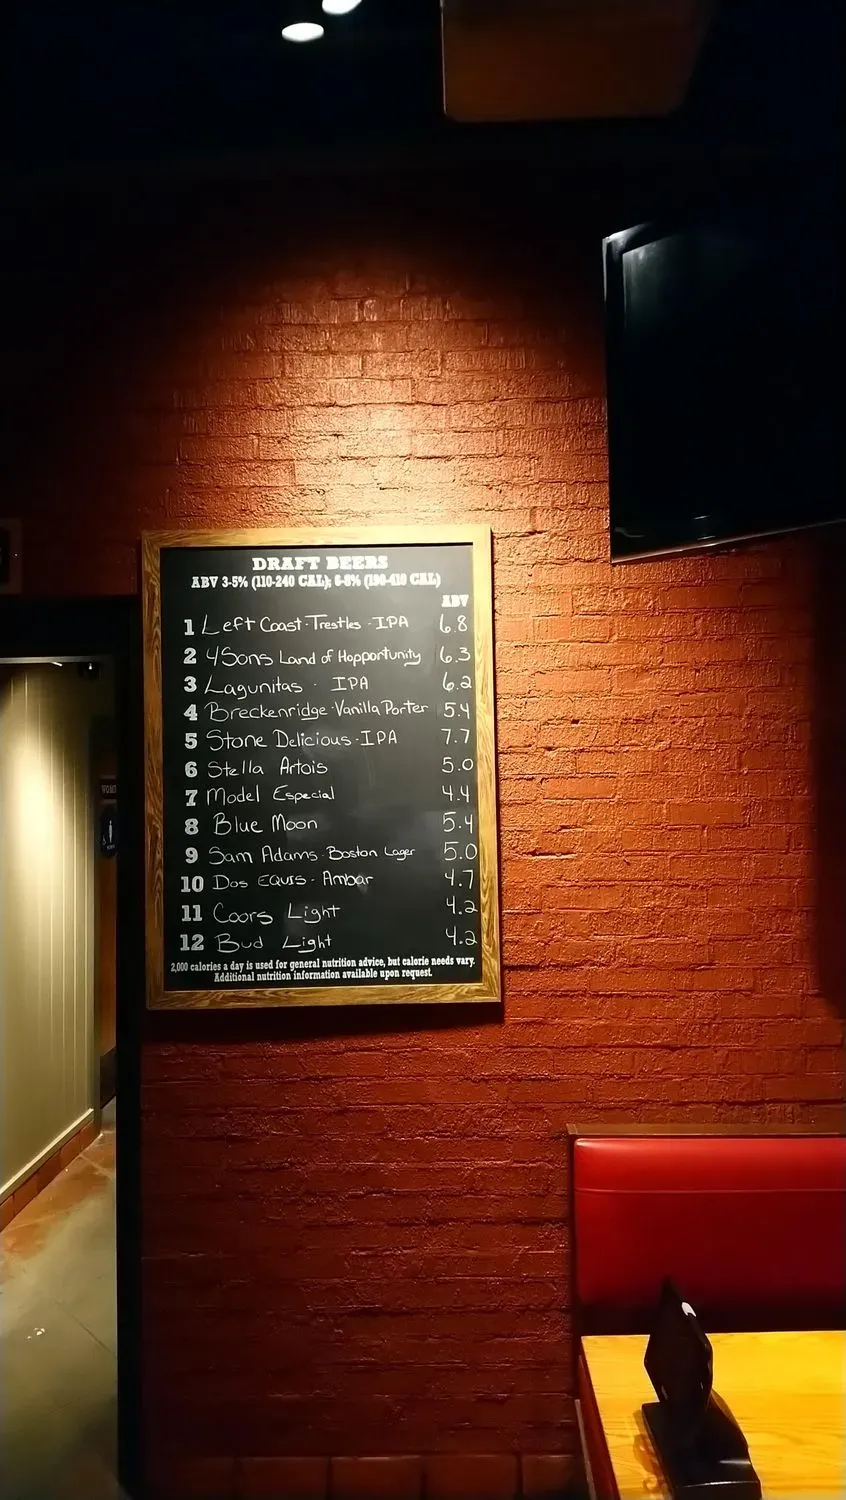 DRAFT BEERS
ABV 3-5% (110-240 CAL); 6-8% (190-410 CAL)
ABV
1 Left Coast·Trestles·IPA 6.8
2 4Sons Land of Hopportunity 6.3
3 Lagunitas · IPA 6.2
4 Breckenridge·Vanilla Porter 5.4
5 Stone Delicious·IPA 7.7
6 Stella Artois 5.0
7 Model Especial 4.4
8 Blue Moon 5.4
9 Sam Adams·Boston Lager 5.0
10 Dos Equis·Ambar 4.7
11 Coors Light 4.2
12 Bud Light 4.2
2,000 calories a day is used for general nutrition advice, but calorie needs vary.
Additional nutrition information available upon request.